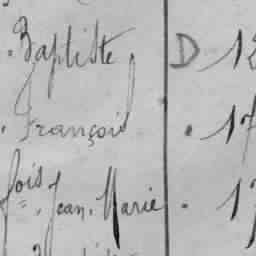 Baptiste D 12
François 17
fois Jean Marie 17